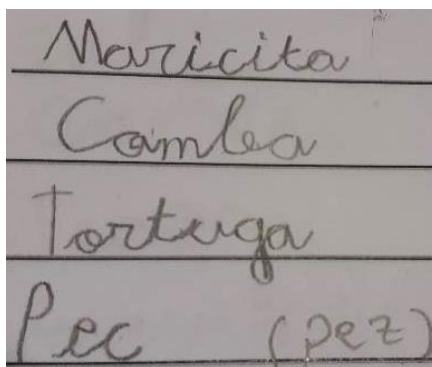 Maricita
Camlea
Tortuga
Pec (pez)